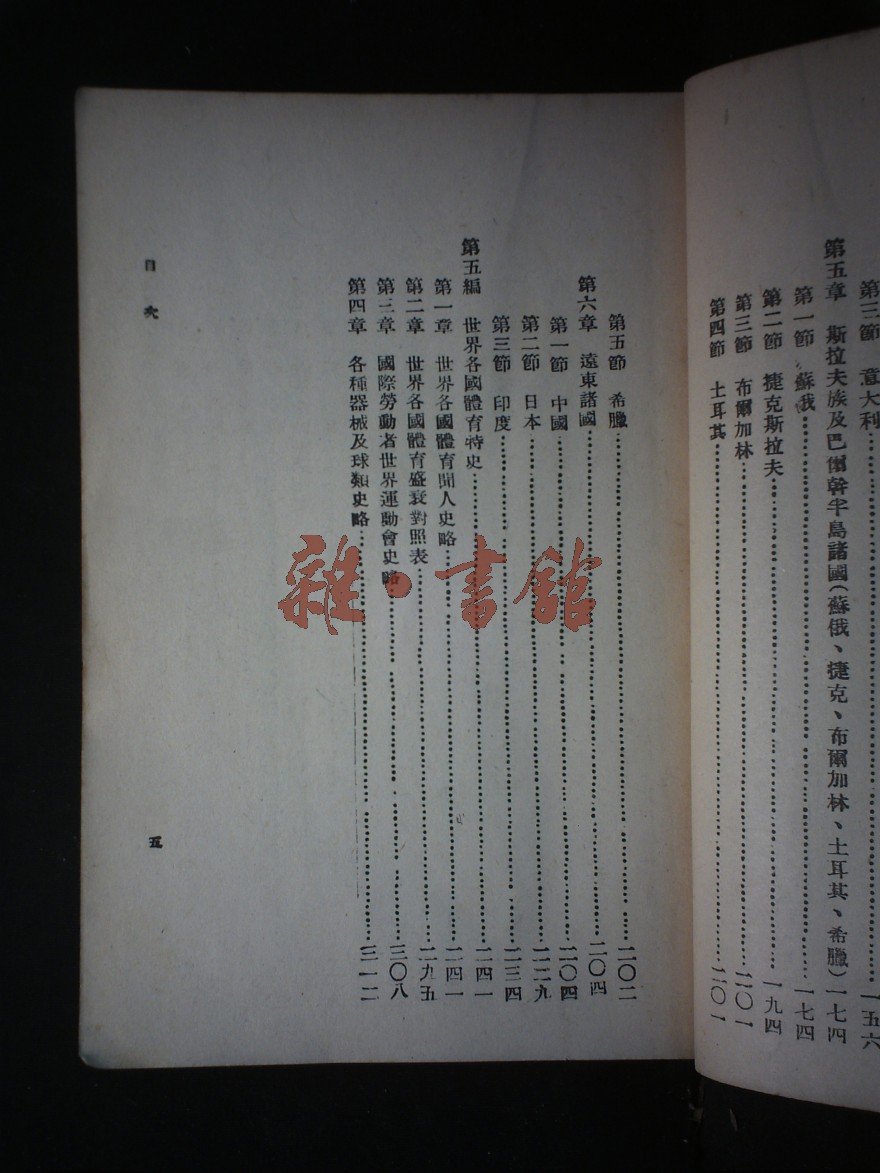 第三節　意大利……一五六
第五章　斯拉夫族及巴爾幹半島諸國(蘇俄、捷克、布爾加林、土耳其、希臘)一七四
第一節　蘇俄……一七四
第二節　捷克斯拉夫……一九四
第三節　布爾加林……二〇一
第四節　土耳其……二〇一
第五節　希臘……二〇二
第六章　遠東諸國……二〇四
第一節　中國……二〇四
第二節　日本……二二九
第三節　印度……二三四
第五編　世界各國體育特史……二四一
第一章　世界各國體育聞人史略……二四一
第二章　世界各國體育盛衰對照表……二九五
第三章　國際勞動者世界運動會史略……三〇八
第四章　各種器械及球類史略……三一二
目次
五
雜·書館